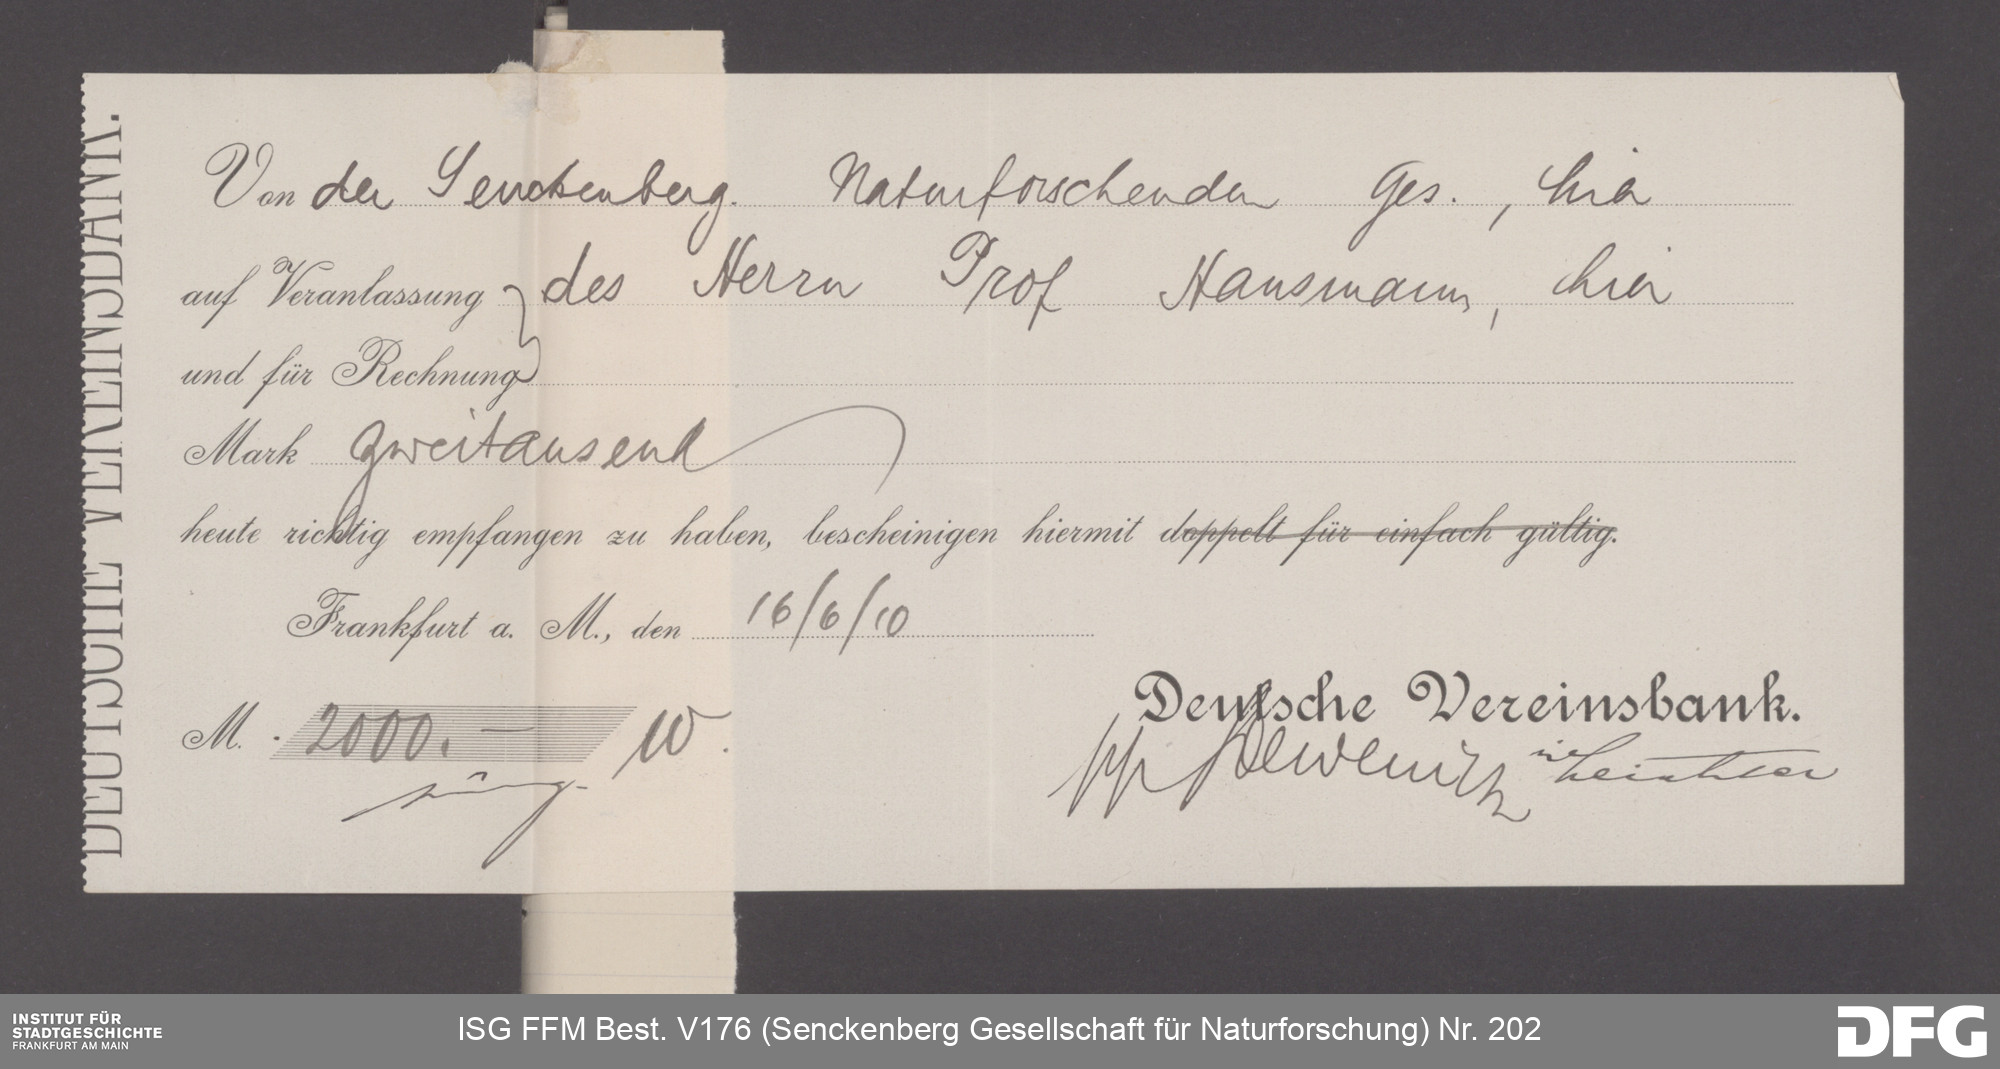 DEUTSCHE VEREINSBANK.
Von der Senckenberg. Naturforschenden Ges., hier
auf Veranlassung des Herrn Prof Hausmann, hier
und für Rechnung
Mark zweitausend
heute richtig empfangen zu haben, bescheinigen hiermit doppelt für einfach gültig.
Frankfurt a. M., den 16/6/10
Deutsche Vereinsbank.
M. 2000.—
INSTITUT FÜR
STADTGESCHICHTE
FRANKFURT AM MAIN
ISG FFM Best. V176 (Senckenberg Gesellschaft für Naturforschung) Nr. 202
DFG